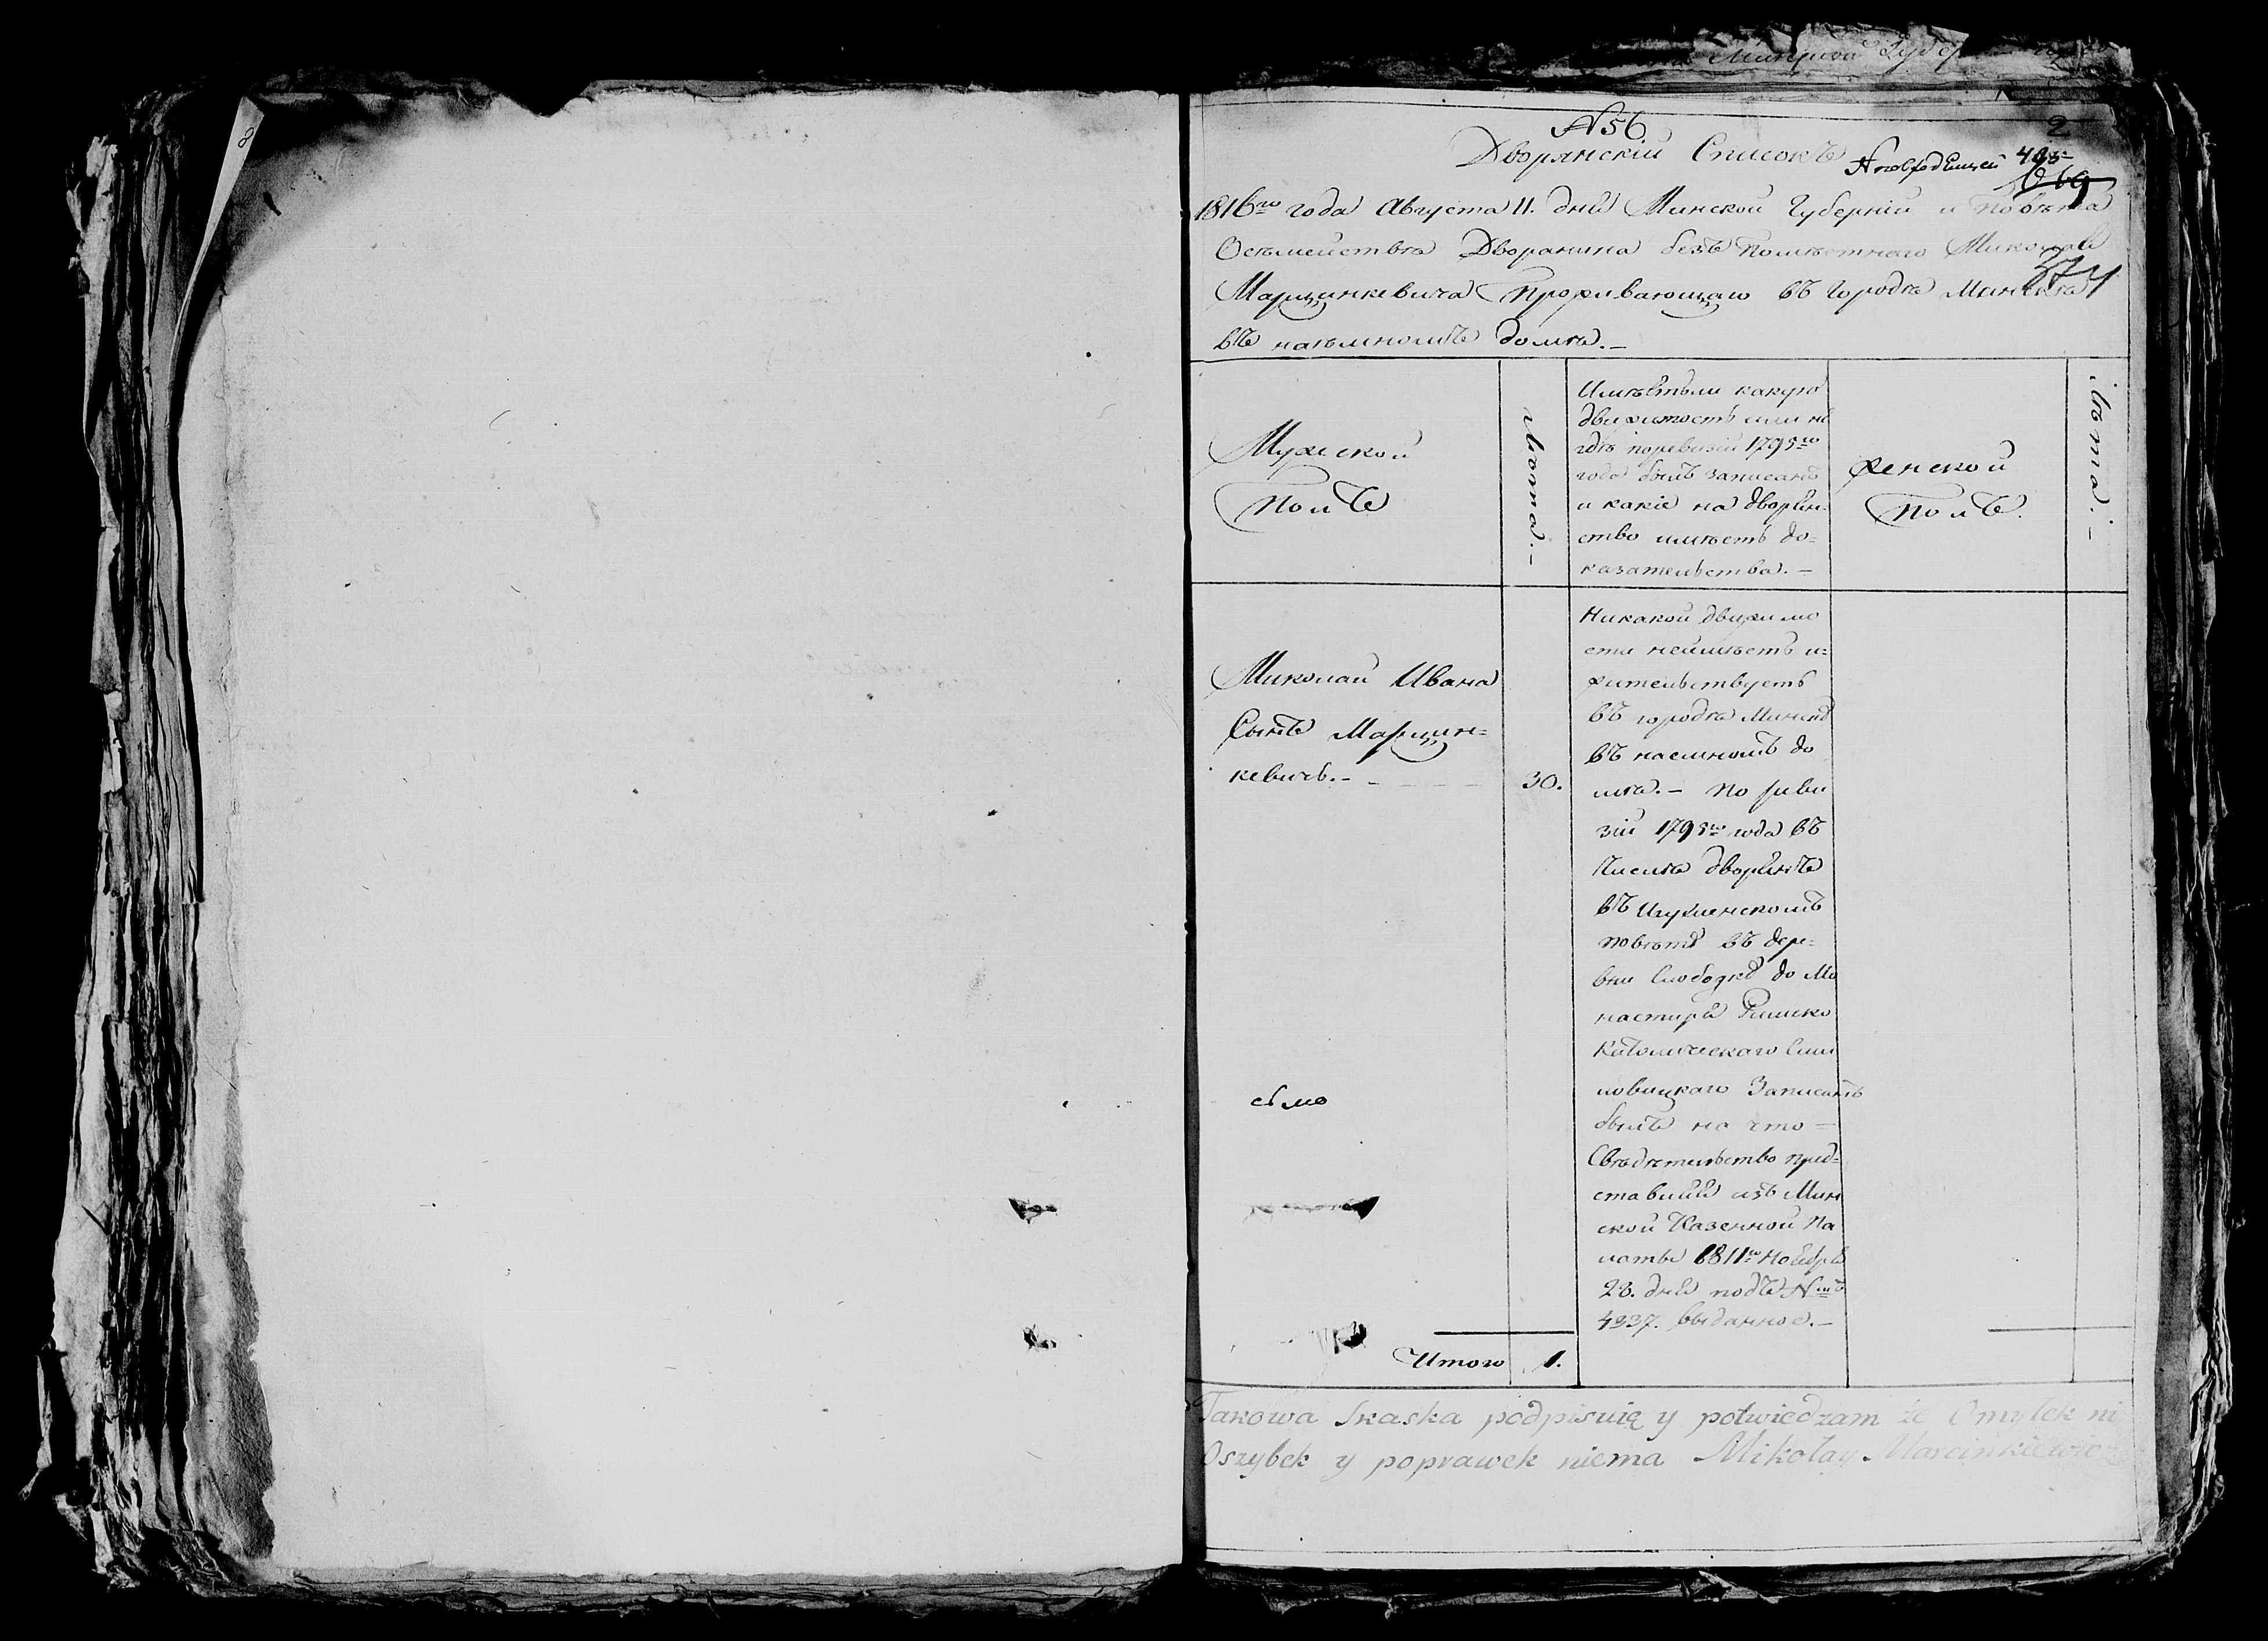 Минской Губер
№ 56
2
Дворянскій Списокъ
1816го года Августа 11. дня Минской Губерніи и Повѣта
Осѣмействѣ Дворянина безъ Помѣстнаго Миколая
374
Марцинкевича Проживающаго въ городѣ Минскѣ
въ наемномъ домѣ.–
Мужеской
Полъ
лѣта.–
Имѣетъли какую
движимость или нѣ
гдѣ поревизіи 1795го
года былъ записанъ
и какіе на дворян-
ство имѣетъ до-
казательства.–
женской
Полъ.
лѣта.–
Миколай Ивана
Сынъ Марцин-
кевичъ.–
30.
Никакой движимо
сти неимѣетъ и-
жительствуетъ
въ городѣ Минскѣ
въ наемномъ до
мѣ.– По риви
зіи 1795го года въ
Числѣ дворянъ
въ Игуменскомъ
повѣтѣ въ дере-
вни Слободкѣ до Мо
настыря Римско
Католическаго Сми
ловицкаго Записанъ
былъ на что –
Свѣдѣтельство пред-
ставилъ изъ Мин
ской Казенной Па
латы 1811го Ноября
28. дня подъ Nмъ
4937. выданное.–
Итого 1.
Takowa Skaska podpisuię y potwiedzam że Omyłek ni
Oszybek y poprawek niema Mikołay Marcinkiewicz